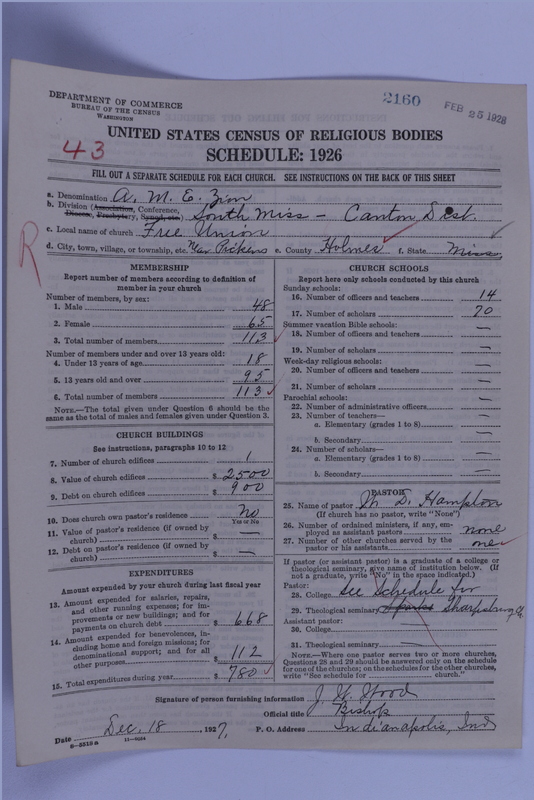 DEPARTMENT OF COMMERCE
BUREAU OF THE CENSUS
WASHINGTON
2160
FEB 25 1928
UNITED STATES CENSUS OF RELIGIOUS BODIES
43
SCHEDULE: 1926
FILL OUT A SEPARATE SCHEDULE FOR EACH CHURCH. SEE INSTRUCTIONS ON THE BACK OF THIS SHEET
a. Denomination A. M. E. Zion
b. Division (Association, Conference, Diocese, Presbytery, Synod, etc.) South Miss - Canton Dist.
c. Local name of church Free Union
d. City, town, village, or township, etc. Near Pickens e. County Holmes f. State Miss.
R
MEMBERSHIP
Report number of members according to definition of member in your church
Number of members, by sex:
1. Male 48
2. Female 65
3. Total number of members 113
Number of members under and over 13 years old:
4. Under 13 years of age 18
5. 13 years old and over 95
6. Total number of members 113
NOTE.—The total given under Question 6 should be the same as the total of males and females given under Question 3.
CHURCH BUILDINGS
See instructions, paragraphs 10 to 12
7. Number of church edifices 1
8. Value of church edifices $ 2500
9. Debt on church edifices $ 900
10. Does church own pastor's residence? No
Yes or No
11. Value of pastor's residence (if owned by church) $ —
12. Debt on pastor's residence (if owned by church) $ —
EXPENDITURES
Amount expended by your church during last fiscal year
13. Amount expended for salaries, repairs, and other running expenses; for improvements or new buildings; and for payments on church debt $ 668
14. Amount expended for benevolences, including home and foreign missions; for denominational support; and for all other purposes $ 112
15. Total expenditures during year $ 780
CHURCH SCHOOLS
Report here only schools conducted by this church
Sunday schools:
16. Number of officers and teachers 14
17. Number of scholars 70
Summer vacation Bible schools:
18. Number of officers and teachers —
19. Number of scholars —
Week-day religious schools:
20. Number of officers and teachers —
21. Number of scholars —
Parochial schools:
22. Number of administrative officers —
23. Number of teachers—
a. Elementary (grades 1 to 8) —
b. Secondary —
24. Number of scholars—
a. Elementary (grades 1 to 8) —
b. Secondary —
PASTOR
25. Name of pastor M. D. Hampton
(If church has no pastor, write "None")
26. Number of ordained ministers, if any, employed as assistant pastors none
27. Number of other churches served by the pastor or his assistants one
If pastor (or assistant pastor) is a graduate of a college or theological seminary, give name of institution below. (If not a graduate, write "No" in the space indicated.)
Pastor:
28. College See Schedule for
29. Theological seminary Sharpsburg
Assistant pastor:
30. College
31. Theological seminary
NOTE.—Where one pastor serves two or more churches, Questions 28 and 29 should be answered only on the schedule for one of the churches; on the schedules for the other churches, write "See schedule for church."
Signature of person furnishing information J. W. Wood
Official title Bishop
Date Dec. 18, 1927, P. O. Address Indianapolis, Ind
8—5519a 11—9234